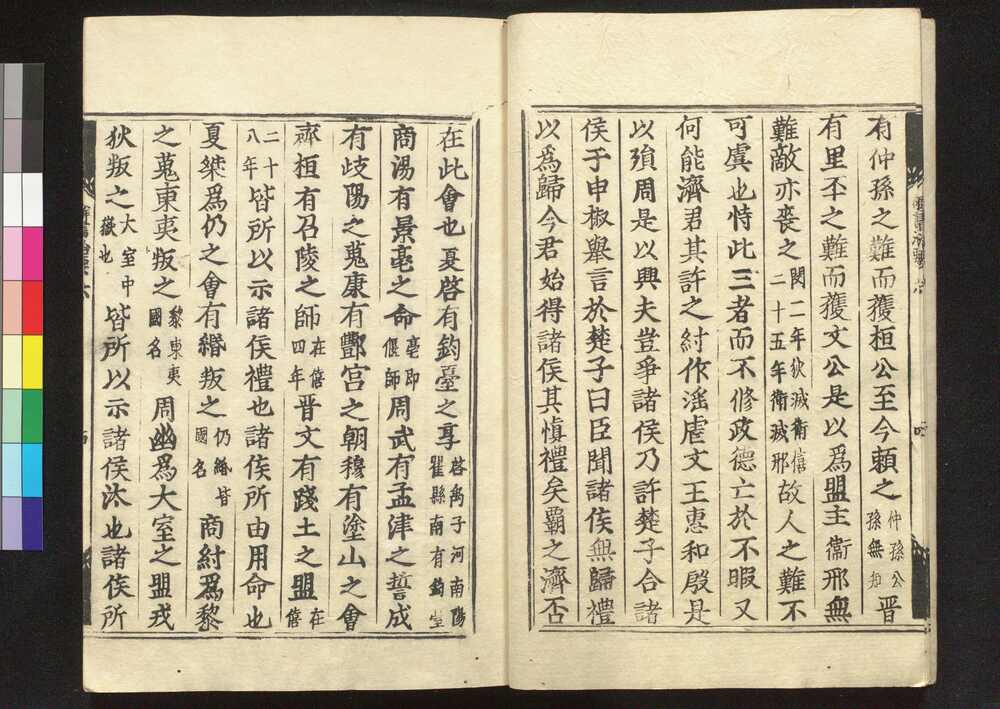 有仲孫之難而獲桓公至今賴之仲孫公孫無知晋
有里丕之難而獲文公是以爲盟主衞邢無
難敵亦丧之閔二年狄滅衞僖二十五年衞滅邢故人之難不
可虞也恃此三者而不修政德亡於不暇又
何能濟君其許之紂作滛虐文王惠和殷是
以殞周是以興夫豈爭諸侯乃許楚子合諸
侯于申椒舉言於楚子曰臣聞諸侯無歸禮
以爲歸今君始得諸侯其慎禮矣覇之濟否
在此會也夏啓有鈞臺之享啓禹子河南陽翟縣南有鈞臺
商湯有景亳之命亳即偃師周武有孟津之誓成
有歧陽之蒐康有酆宮之朝穆有塗山之會
齊桓有召陵之師在僖四年晋文有踐土之盟在僖
二十八年皆所以示諸侯禮也諸侯所由用命也
夏桀爲仍之會有緡叛之仍緡皆國名商紂爲黎
之蒐東夷叛之黎東夷國名周幽爲大室之盟戎
狄叛之大室中嶽也皆所以示諸侯汰也諸侯所